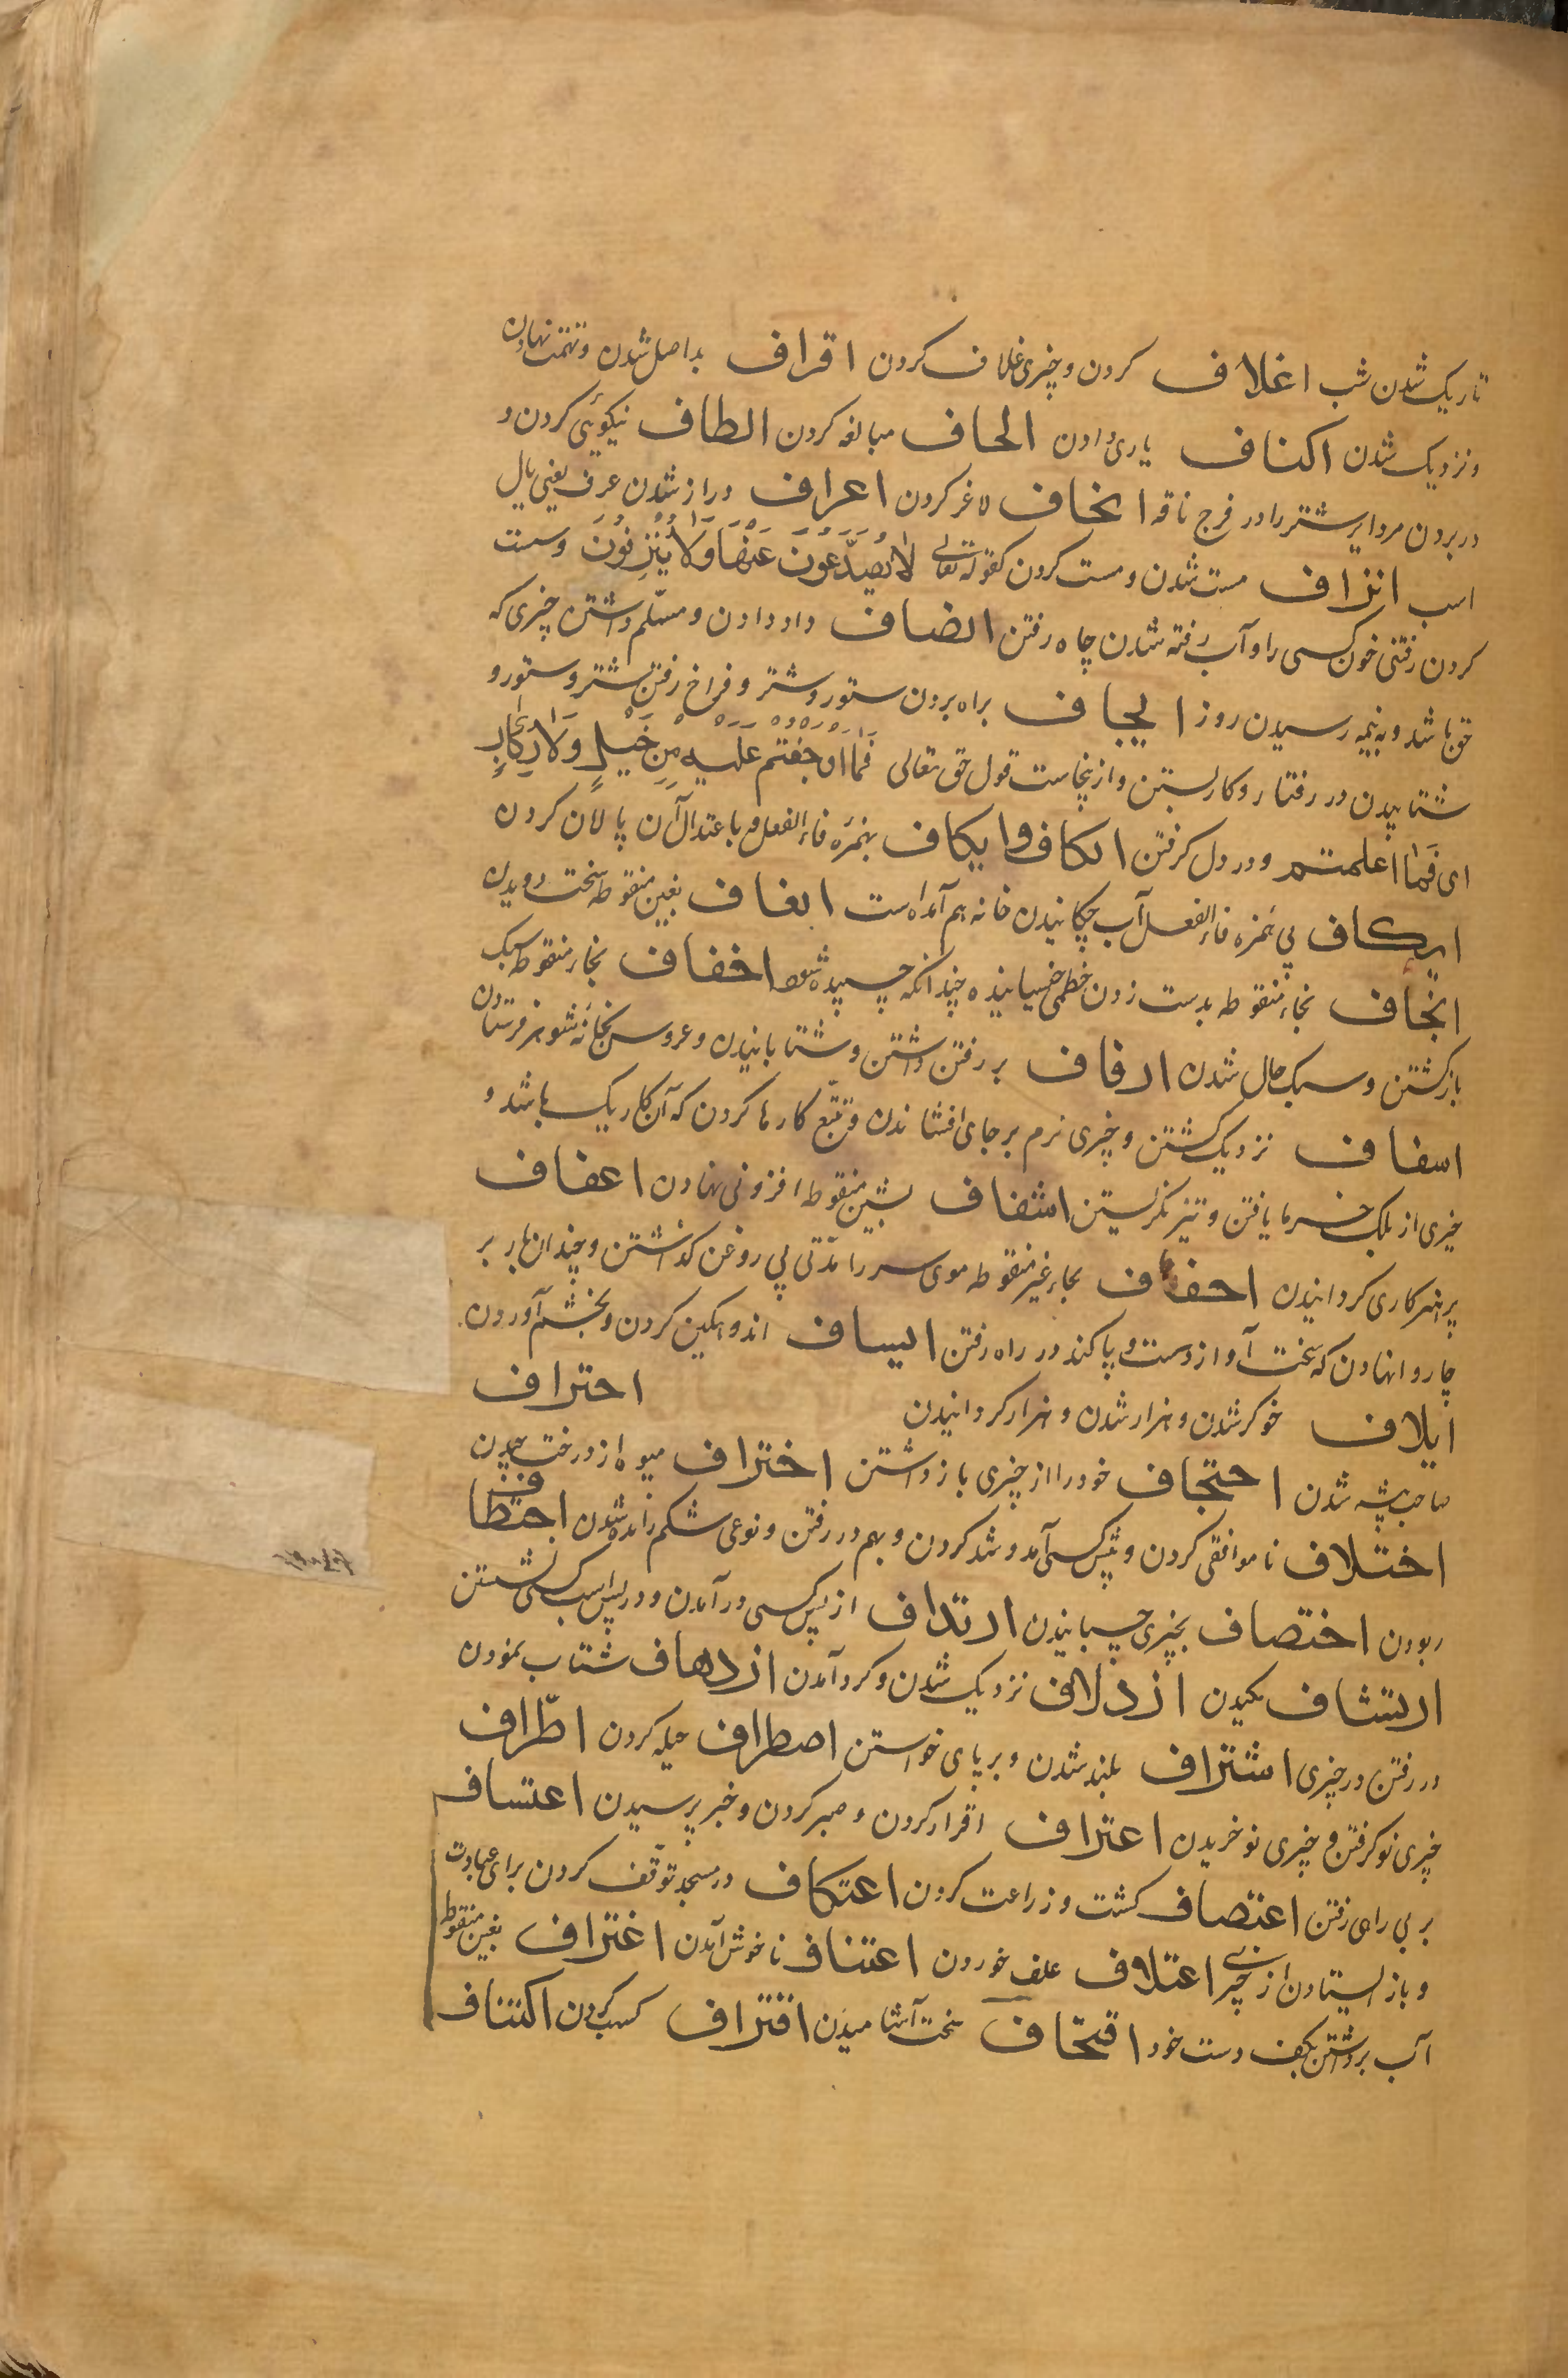 تاریک شدن شب اغلاف کردن و چیزی غلاف کردن اقراف بداصل شدن و تهمت نهادن
و نزدیک شدن اکناف یاری دادن الحاف مبالغه کردن الطاف نیکوئی کردن و
در بردن مرد ایر شتر را در فرج ناقه انحاف لاغر کردن اعراف دراز شدن عرف یعنی یال
اسب انزاف مست شدن و مست کردن کقوله تعالی لَا یُصَدَّعُونَ عَنْهَا وَلَا یُنْزِفُونَ وسست
کردن رفتنی خون کسی را و آب رفته شدن چاه رفتن انصاف داد دادن و مسلّم داشتن چیزی که
حق باشد و به نیمه رسیدن روز ایجاف براه بردن ستور و شتر و فراخ رفتن شتر و ستور و
شتابیدن در رفتار و کار بستن و ازینجاست قول حق تعالی فَمَا اَوْجَفْتُمْ عَلَیْهِ مِنْ خَیْلٍ وَلَا رِکَابٍ
ای فَمَا اعلمتم و در دل گرفتن اکاف و ایکاف بهمزه فاء الفعل و باعتدال آن پالان کردن
ایکاف بی همزه فاء الفعل آب چکانیدن خانه هم آمده است ایغاف بغین منقوطه سخت دویدن
انخاف بخاء منقوطه بدست زدن خطمی خیسانیده چندانکه چسپیده شود اخفاف بخاء منقوطه سبک
بازگشتن و سبک حال شدن ازفاف بر رفتن داشتن و شتابانیدن و عروس بخانه شوهر فرستادن
اسفاف نزدیک گشتن و چیزی نرم بر جای افشاندن و تتبّع کارها کردن که آن کار یک باشد و
چیزی از بلک خرما یافتن و تیز نگریستن اشفاف بشین منقوطه افزونی نهادن اعفاف
پرهیزکاری گردانیدن احفاف بحاء غیر منقوطه موی سر را مدّتی بی روغن گذاشتن و چندان بار بر
چاروا نهادن که سخت آواز دست و پا کند در راه رفتن ایساف اندوهگین کردن و بخشم آوردن
ایلاف خوگر شدن و هزار شدن و هزار گردانیدن احتراف
صاحب پیشه شدن احتجاف خود را از چیزی باز داشتن اختراف میوه از درخت چیدن
اختلاف ناموافقی کردن و پس کسی آمد و شد کردن و بهم در رفتن و نوعی شکم رانده شدن اختطاف
ربودن اختصاف بچیزی چسپانیدن ارتداف از پس کسی در آمدن و در پس اسب کسی نشستن
ارتشاف مکیدن ازدلاف نزدیک شدن و گرد آمدن ازدهاف شتاب نمودن
در رفتن در چیزی اشتراف بلند شدن و بر پای خواستن اصطراف حیله کردن اطّراف
چیزی نو گرفتن و چیزی نو خریدن اعتراف اقرار کردن و صبر کردن و خبر پرسیدن اعتساف
بر بی راهی رفتن اعتصاف کشت و زراعت کردن اعتکاف در مسجد توقّف کردن برای عبادت
و باز ایستادن از چیزی اعتلاف علف خوردن اعتناف ناخوش آمدن اغتراف بغین منقوطه
آب برداشتن بکف دست خود اقتحاف سخت آشامیدن اقتراف کسب کردن اکتناف